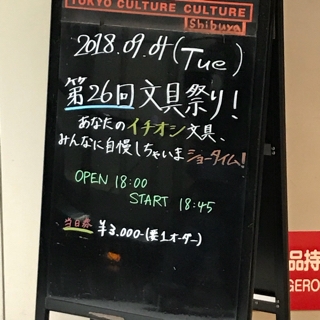 TOKYO CULTURE CULTURE
Shibuya
2018.09.04(Tue)
第26回文具祭り!
あなたのイチオシ文具、
みんなに自慢しちゃいまショータイム!
OPEN 18:00
START 18:45
当日券 ¥3.000-(要1オーダー)
品持
GERO